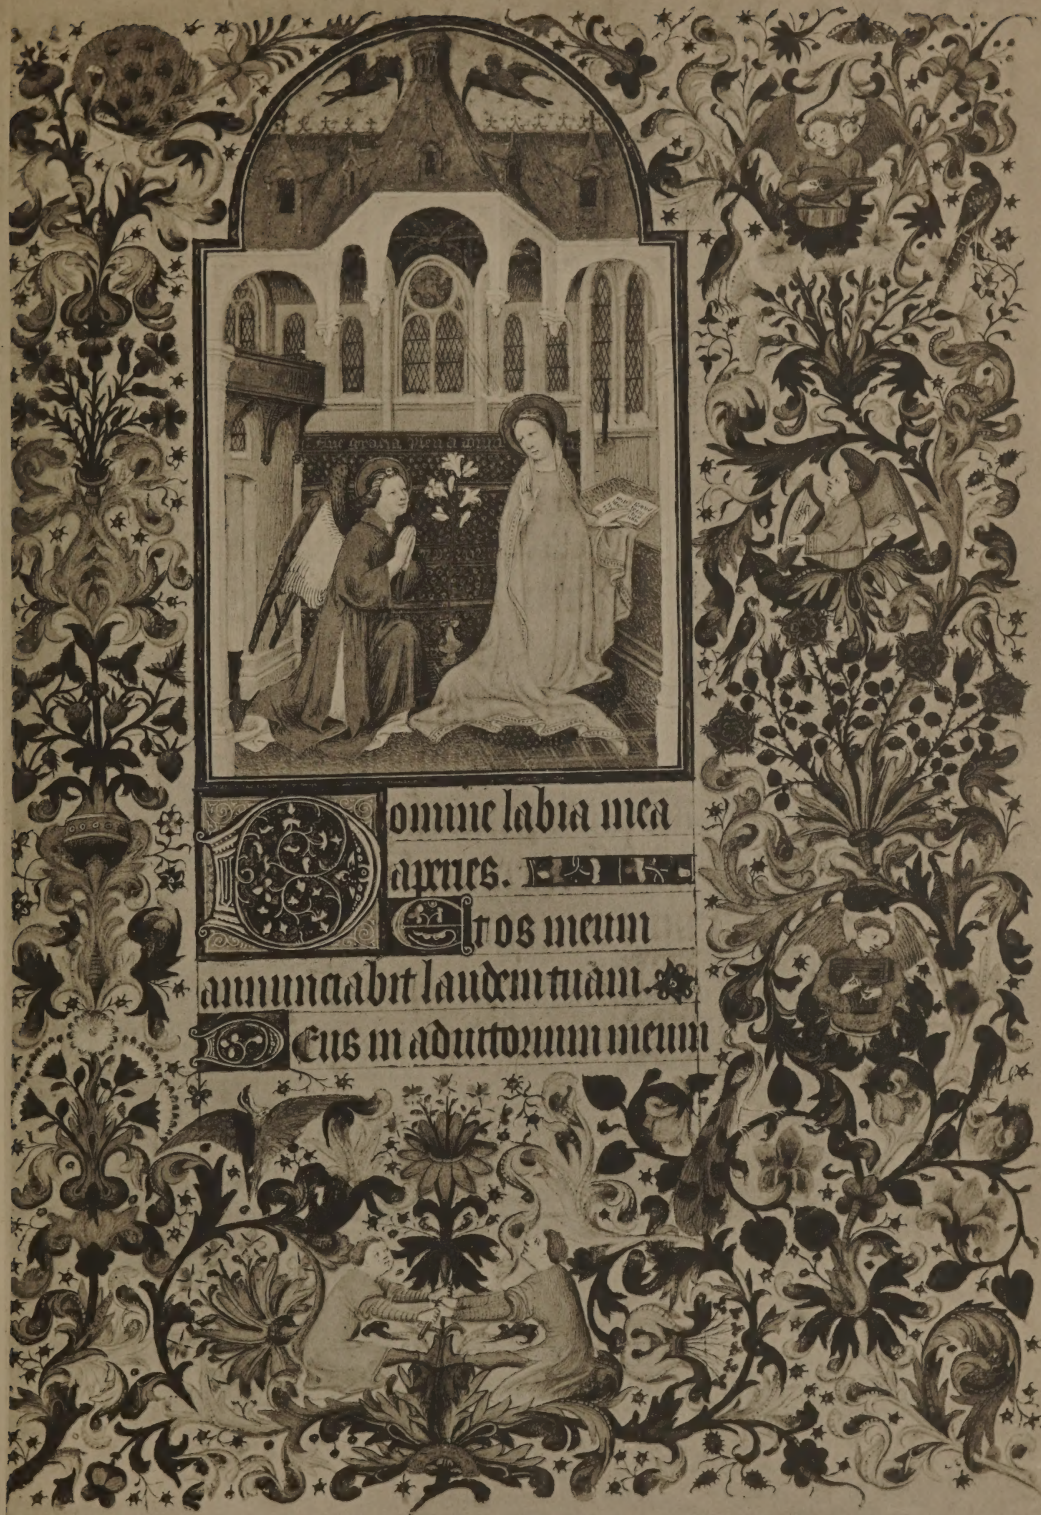 Ave gracia plena
Domine labia mea
aperies.
Et os meum
annunciabit laudem tuam.
Deus in adiutorium meum